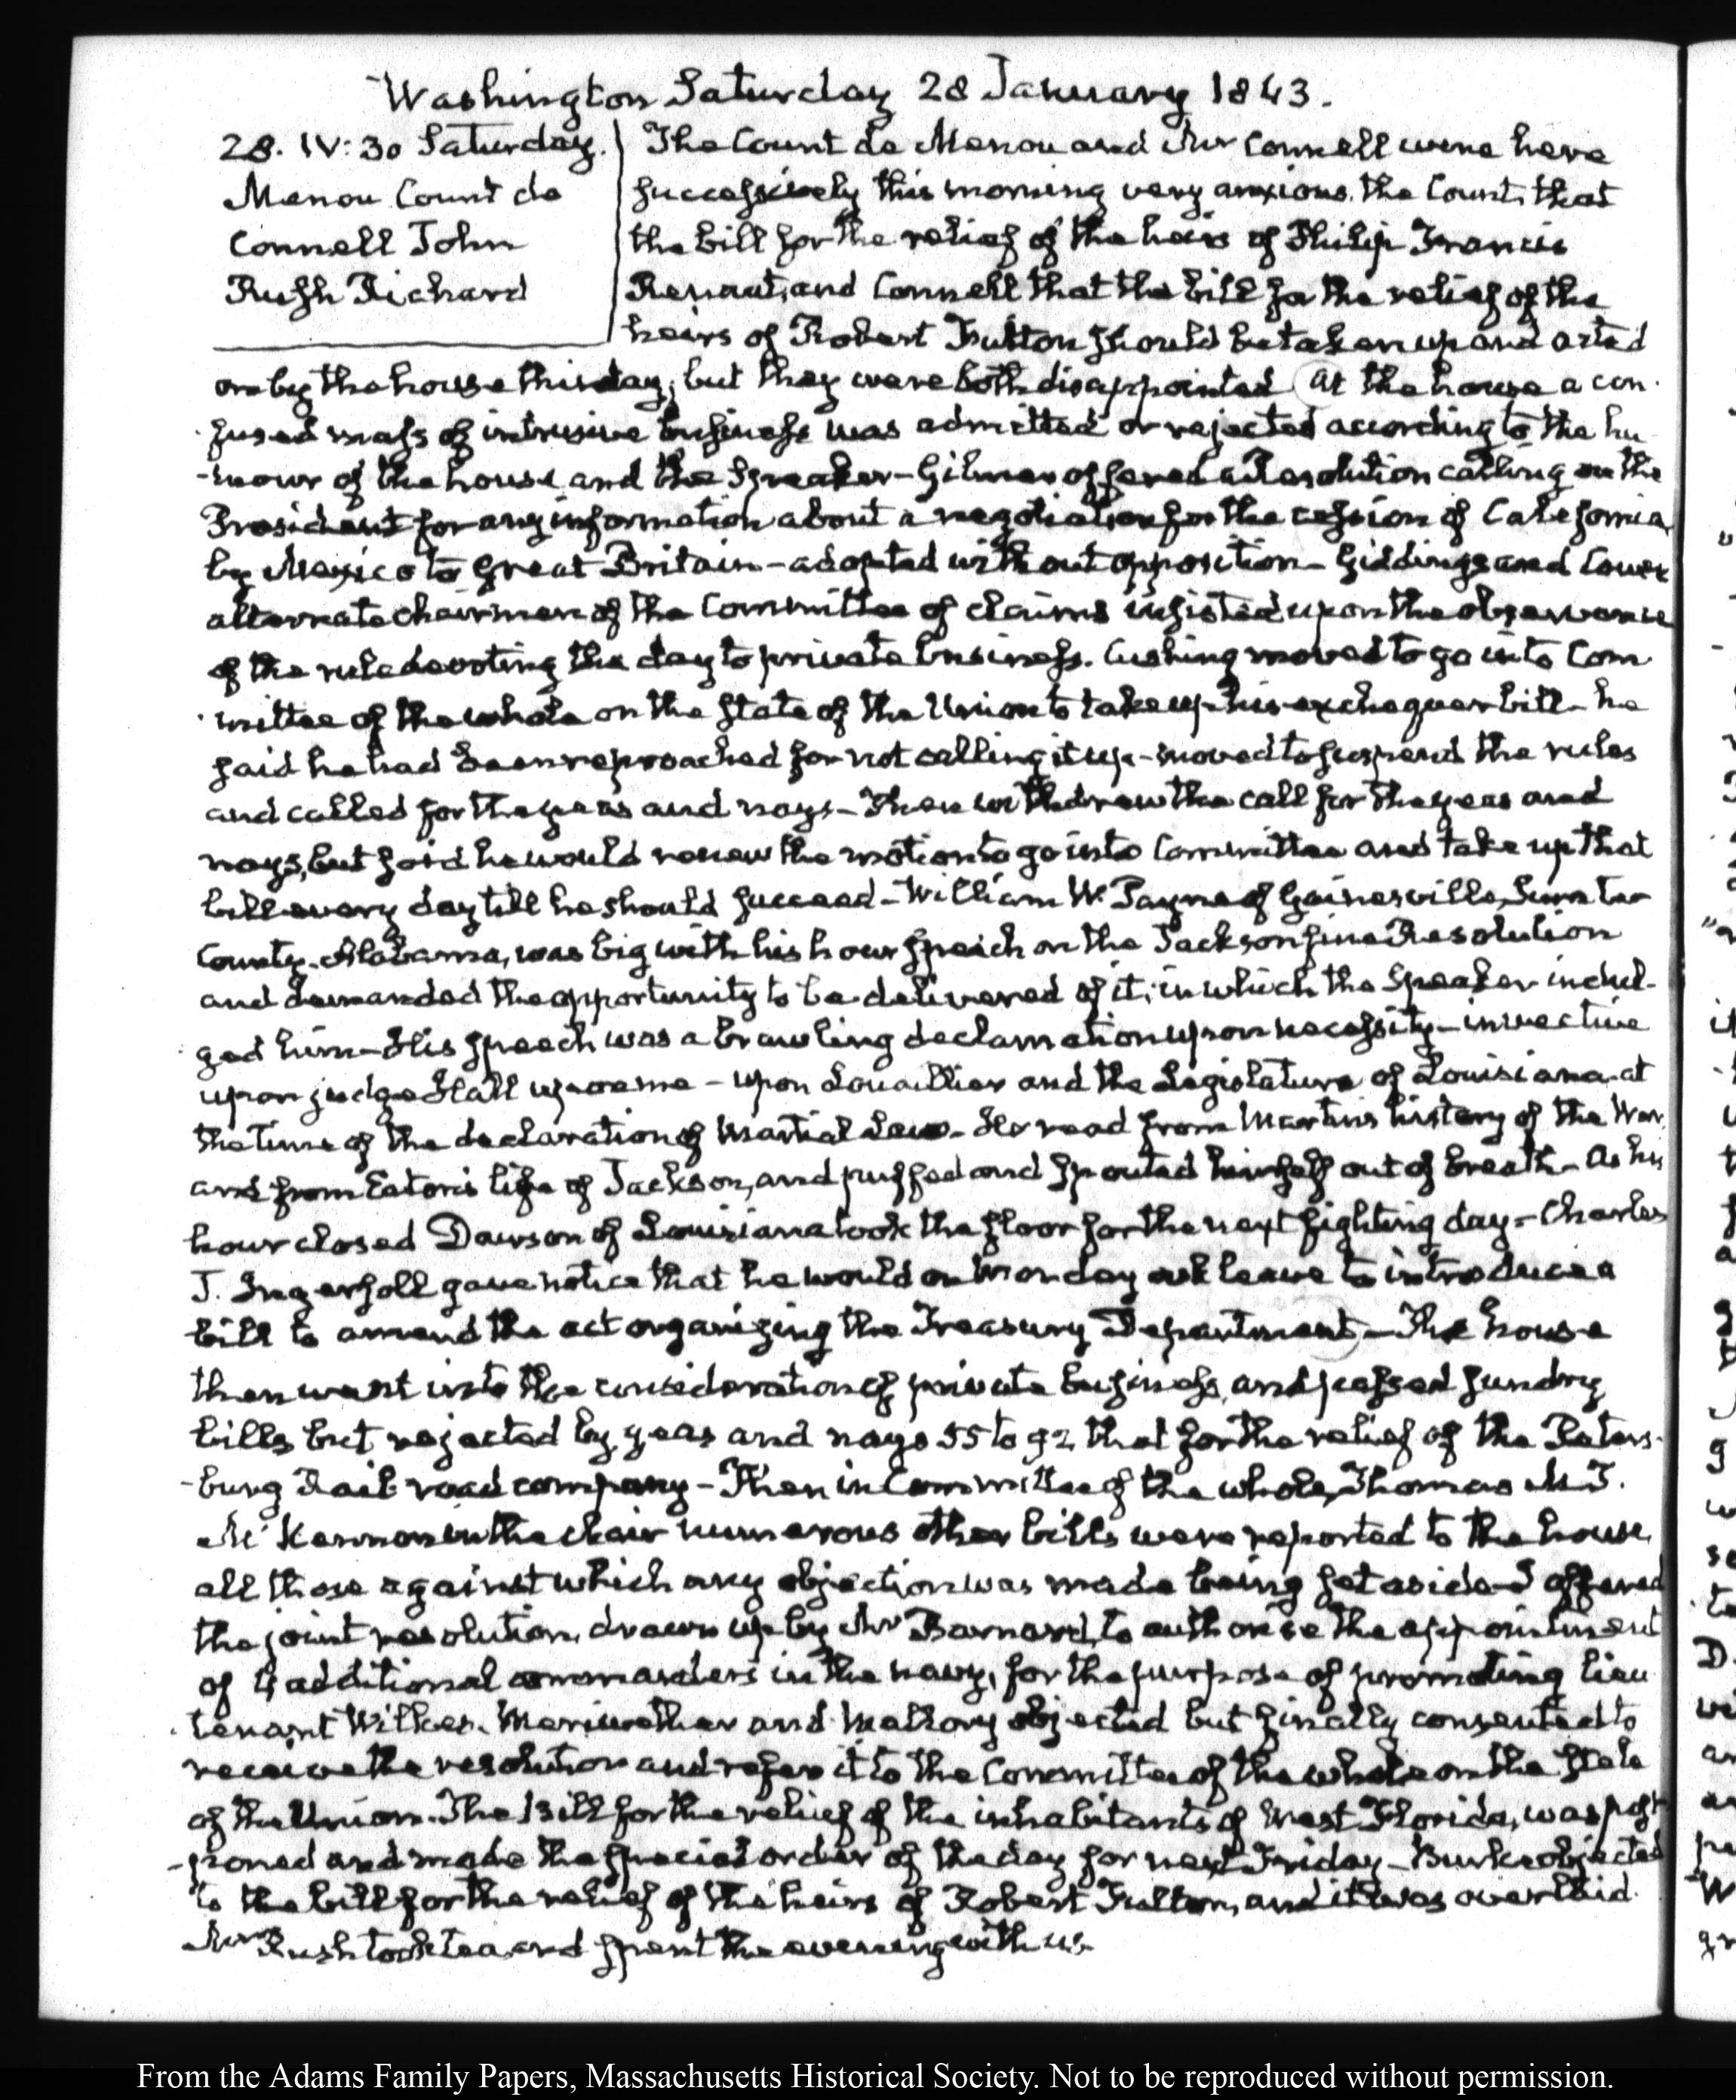 Washington Saturday 28 January 1843.
28. IV:30 Saturday.
Menou Count de
Connell John
Rush Richard
The Count de Menou and Mr Connell were here
successively this morning very anxious, the Count, that
the bill for the relief of the heirs of Philip Francis
Renaut, and Connell that the bill for the relief of the
heirs of Robert Fulton should be taken up and acted
on by the house this day; but they were both disappointed At the house a con-
fused mass of intrusive business was admitted or rejected according to the hu-
-mour of the house and the Speaker – Gilmer offered a Resolution calling on the
President for any information about a negotiation for the cession of California
by Mexico to Great Britain – adopted without opposition – Giddings and Cowen
alternate chairmen of the Committee of claims insisted upon the observance
of the rule devoting the day to private business. Cushing moved to go into Com-
mittee of the whole on the state of the Union to take up his exchequer bill – he
said he had been reproached for not calling it up – moved to suspend the rules
and called for the yeas and nays – Then withdrew the call for the yeas and
nays, but said he would renew the motion to go into Committee and take up that
bill every day till he should succeed – William W. Payne of Gainesville, Sumter
County. Alabama, was big with his hour speech on the Jackson fine Resolution
and demanded the opportunity to be delivered of it; in which the Speaker indul-
ged him – His speech was a brawling declamation upon necessity – invective
upon judge Hall upon me – upon Louaillier and the Legislature of Louisiana at
the time of the declaration of Martial Law – He read from Martin's history of the War
and from Eaton's life of Jackson, and puffed and spouted himself out of breath – As his
hour closed Dawson of Louisiana took the floor for the next fighting day – Charles
J. Ingersoll gave notice that he would on Monday ask leave to introduce a
bill to amend the act organizing the Treasury Department – The house
then went into the consideration of private business, and passed sundry
bills but rejected by yeas and nays 55 to 92 that for the relief of the Peters-
-burg Rail road company – Then in Committee of the whole, Thomas M. T.
McKennan in the chair numerous other bills were reported to the house,
all those against which any objection was made being set aside – I offered
the joint resolution, drawn up by Mr Barnard, to authorise the appointment
of 4 additional commanders in the navy, for the purpose of promoting lieu-
tenant Wilkes. Meriwether and Mallory objected but finally consented to
receive the resolution and refer it to the Committee of the whole on the state
of the Union. The Bill for the relief of the inhabitants of West Florida, was post-
-poned and made the special order of the day for next Friday – Burke objected
to the bill for the relief of the heirs of Robert Fulton, and it was overlaid.
Mr Rush took tea and spent the evening with us.
From the Adams Family Papers, Massachusetts Historical Society. Not to be reproduced without permission.